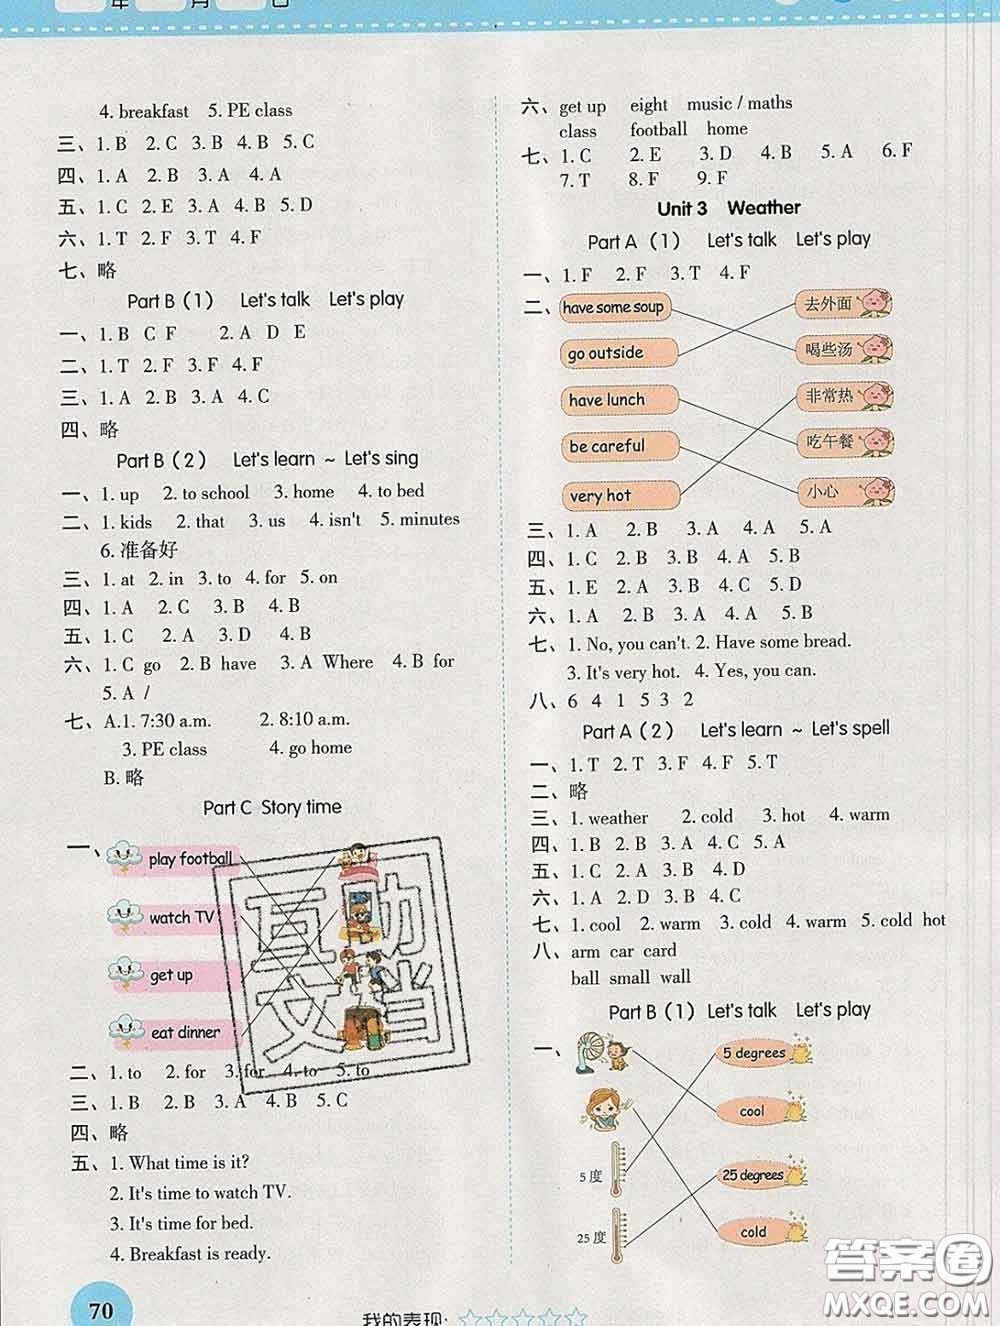 年 月 日
4. breakfast 5. PE class
三、1. B 2. C 3. B 4. B 5. C
四、1. A 2. B 3. A 4. A
五、1. C 2. E 3. A 4. B 5. D
六、1. T 2. F 3. T 4. F
七、略
Part B (1) Let's talk Let's play
一、1. B C F 2. A D E
二、1. T 2. F 3. F 4. F
三、1. A 2. B 3. A 4. C
四、略
Part B (2) Let's learn ~ Let's sing
一、1. up 2. to school 3. home 4. to bed
二、1. kids 2. that 3. us 4. isn't 5. minutes
6. 准备好
三、1. at 2. in 3. to 4. for 5. on
四、1. A 2. C 3. B 4. B
五、1. C 2. A 3. D 4. B
六、1. C go 2. B have 3. A Where 4. B for
5. A /
七、A. 1. 7:30 a.m. 2. 8:10 a.m.
3. PE class 4. go home
B. 略
Part C Story time
一、 play football
watch TV
get up
eat dinner
二、1. to 2. for 3. for 4. to 5. to
三、1. B 2. B 3. A 4. B 5. C
四、略
五、1. What time is it?
2. It's time to watch TV.
3. It's time for bed.
4. Breakfast is ready.
70
六、get up eight music / maths
class football home
七、1. C 2. E 3. D 4. B 5. A 6. F
7. T 8. F 9. F
Unit 3 Weather
Part A (1) Let's talk Let's play
一、1. F 2. F 3. T 4. F
二、 have some soup 去外面
go outside 喝些汤
have lunch 非常热
be careful 吃午餐
very hot 小心
三、1. A 2. B 3. A 4. A 5. A
四、1. C 2. B 3. A 4. A 5. B
五、1. E 2. A 3. B 4. C 5. D
六、1. A 2. B 3. A 4. A 5. B
七、1. No, you can't. 2. Have some bread.
3. It's very hot. 4. Yes, you can.
八、6 4 1 5 3 2
Part A (2) Let's learn ~ Let's spell
一、1. T 2. T 3. F 4. F 5. T
二、略
三、1. weather 2. cold 3. hot 4. warm
四、1. B 2. B 3. A 4. C 5. A
五、1. C 2. A 3. B 4. D
六、1. A 2. D 3. B 4. C
七、1. cool 2. warm 3. cold 4. warm 5. cold hot
八、arm car card
ball small wall
Part B (1) Let's talk Let's play
一、 5 degrees
cool
5 度 25 degrees
25 度 cold
我的表现:
互助文档
答案圈
MXQE.COM